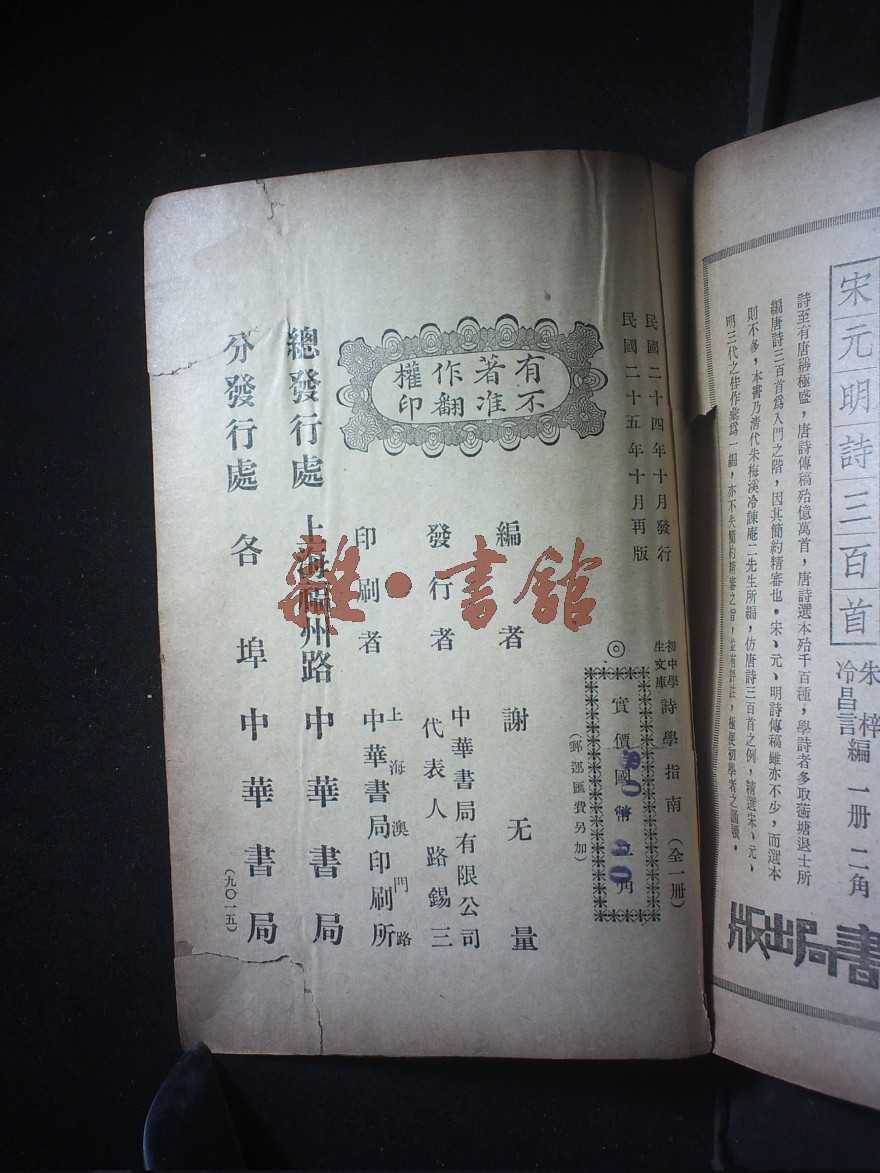 宋元明詩三百首
朱梓
冷昌言編 一册 二角
詩至有唐稱極盛，唐詩傳稿殆億萬首，唐詩選本殆千百種，學詩者多取蘅塘退士所
編唐詩三百首爲入門之階，因其簡約精審也。宋、元、明詩傳稿雖亦不少，而選本
則不多，本書乃清代朱梅溪冷諫庵二先生所編，仿唐詩三百首之例，精選宋、元、
明三代之佳作彙爲一編，亦不失簡約精審之旨，並有評註，極便初學者之誦習。
書局出版
民國二十四年十月發行
民國二十五年十月再版
初中學
生文庫
詩學指南（全一册）
◎
實價國幣
（郵運匯費另加）
有著作權
不准翻印
編者 謝无量
發行者
中華書局有限公司
代表人 路錫三
印刷者
上海澳門路
中華書局印刷所
總發行處 上海福州路 中華書局
分發行處 各埠中華書局
（九〇一五）
雜·書館